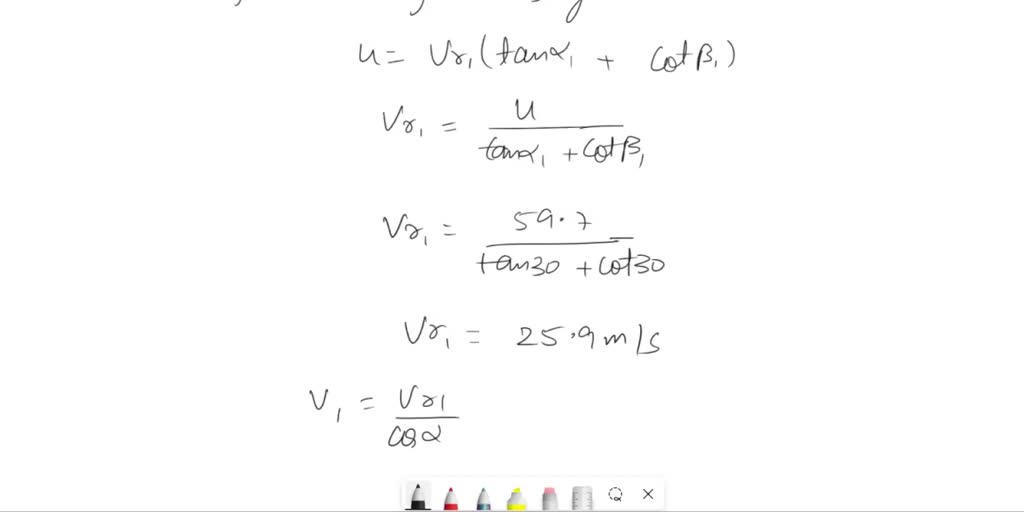 u = Vr₁ (tanα₁ + Cotβ₁)
Vr₁ = u / tanα₁ + Cotβ₁
Vr₁ = 59.7 / tan30 + Cot30
Vr₁ = 25.9 m/s
V₁ = Vr₁ / cosα